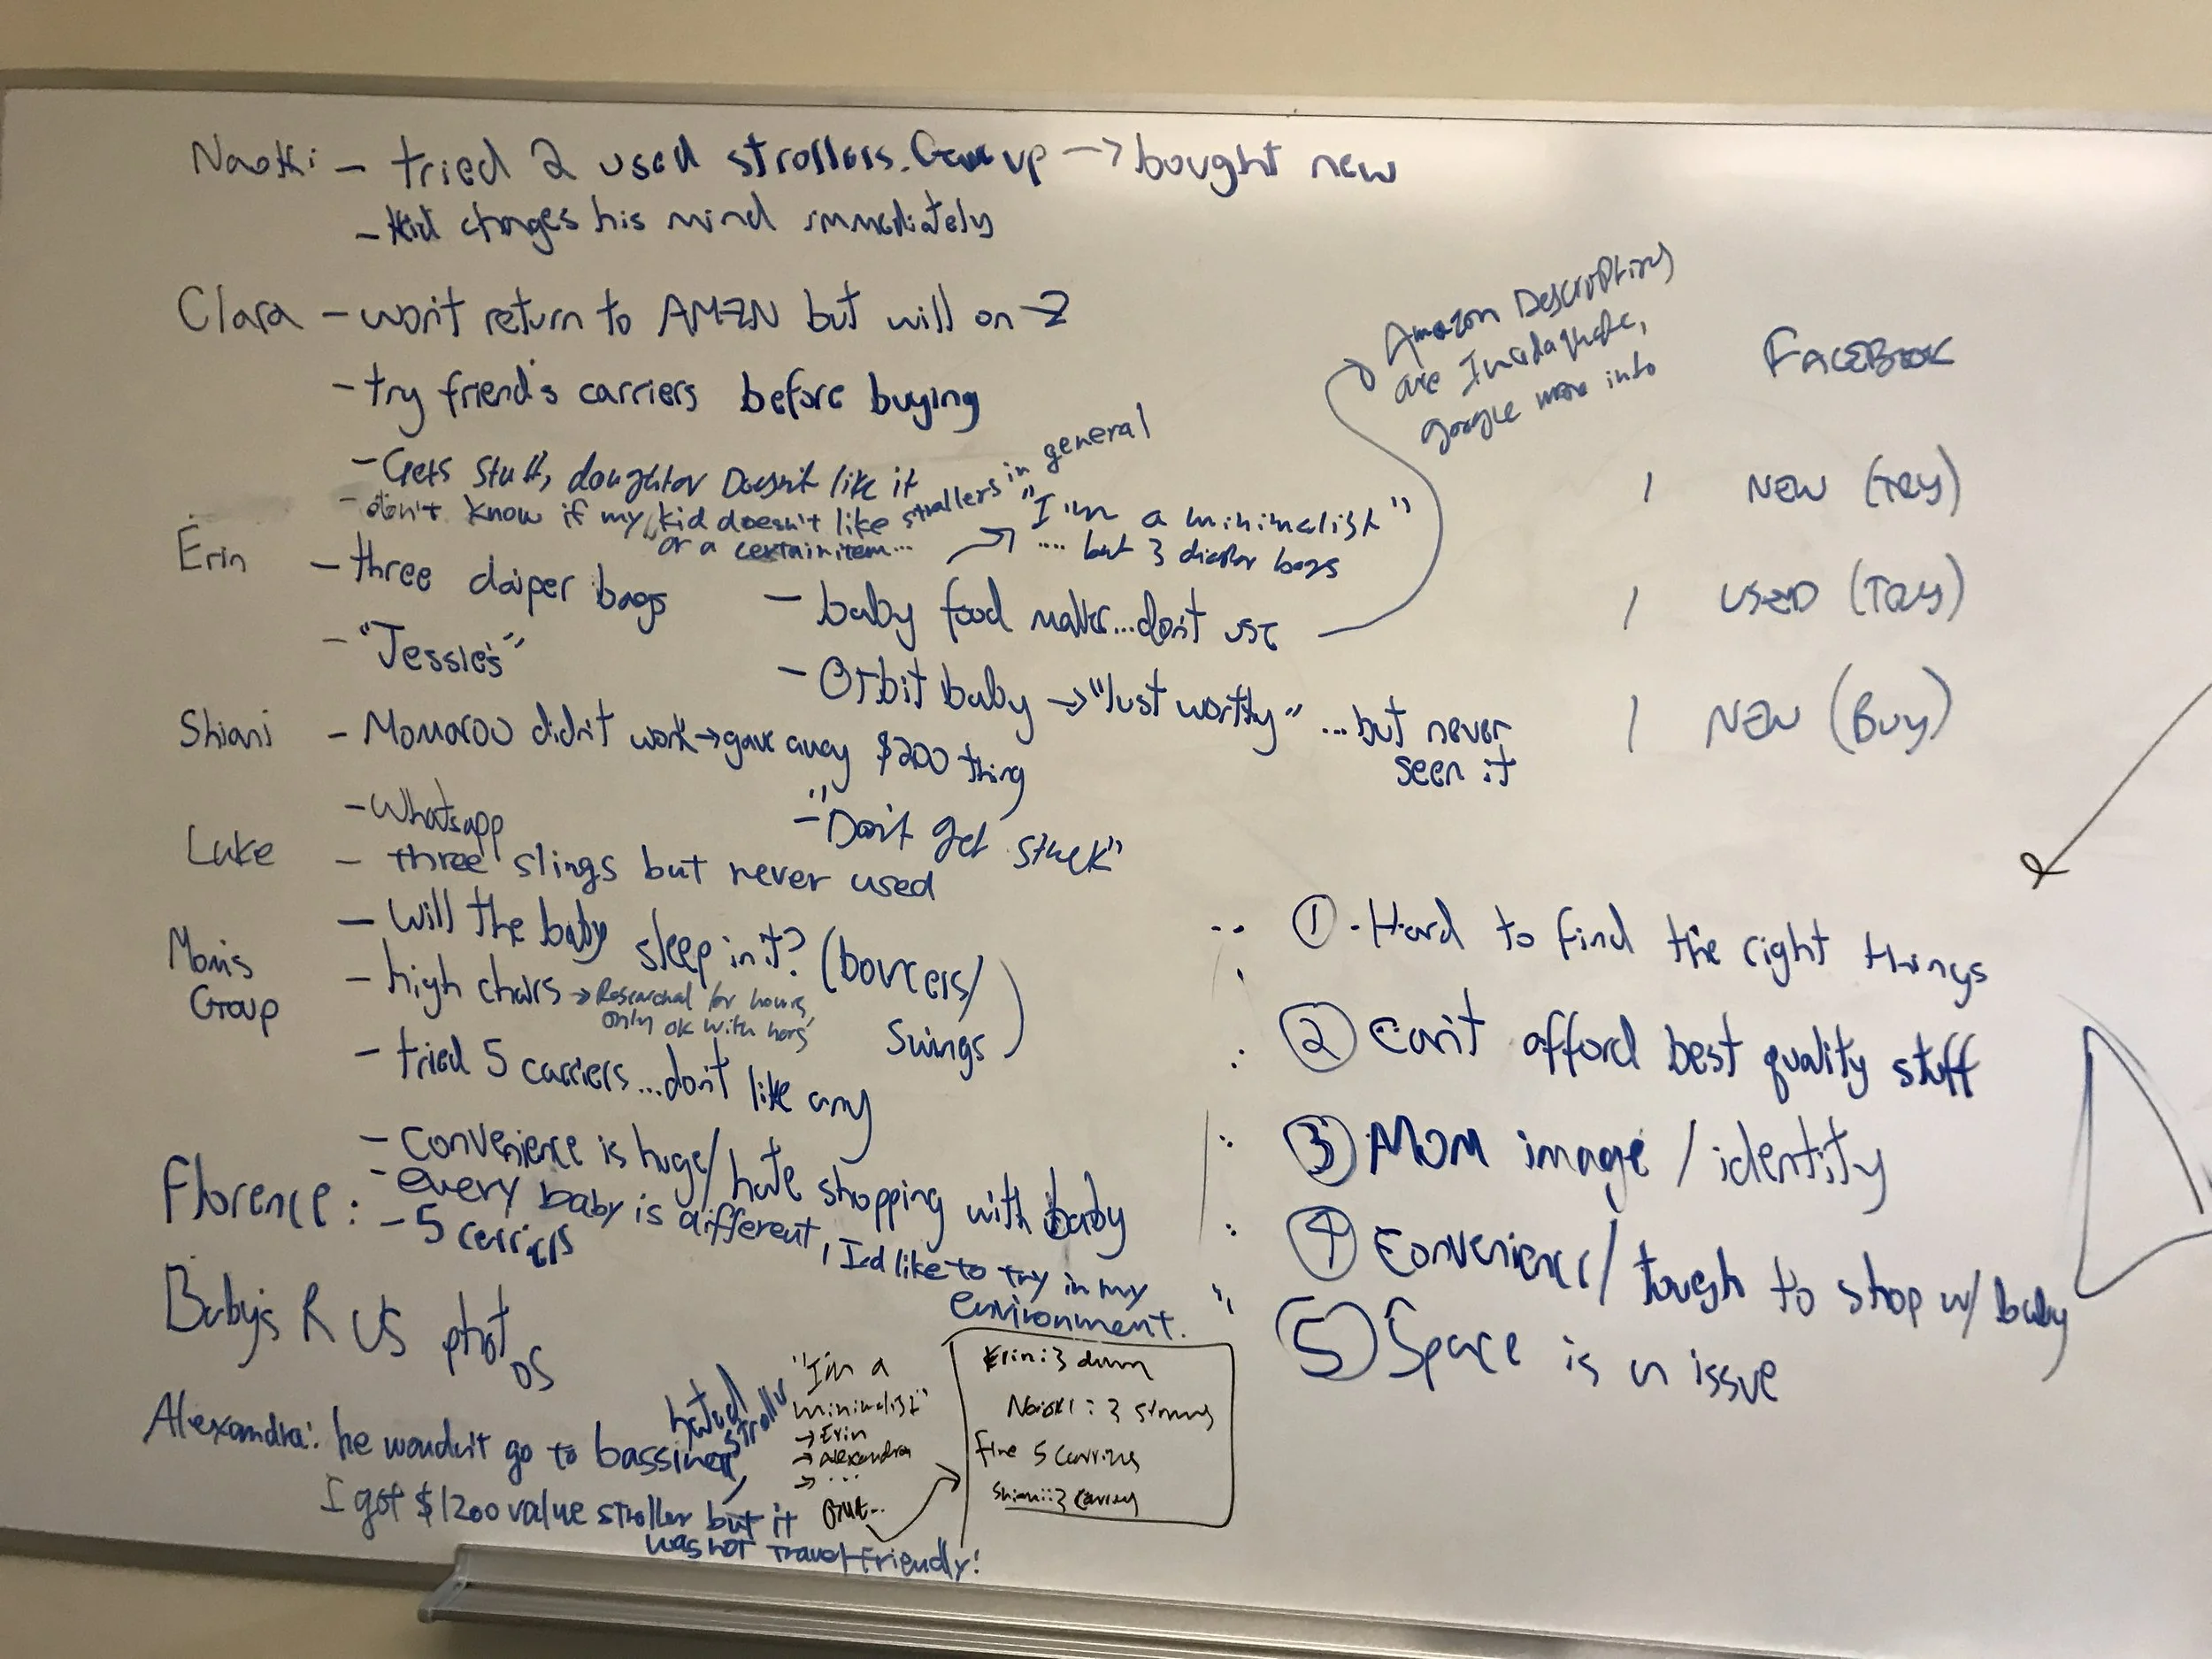 Naoki - tried 2 used strollers. Gave up → bought new
- kid changes his mind immediately
Clara - won't return to AMZN but will on
- try friend's carriers before buying
- Gets stuff, daughter Doesn't like it
- don't know if my kid doesn't like strollers in general
or a certain item...
Erin - three daiper bags
"I'm a minimalist"
.... but 3 diaper bags
- "Jessie's"
- baby food maker...don't use
Amazon Descriptions
are Inadaquate,
google more into
- Orbit baby → "lust worthy" ...but never
seen it
Shiani - Momaroo didn't work → gave away $200 thing
- Whatsapp
- "Don't get stuck"
Luke - three slings but never used
Mom's
Group
- Will the baby sleep in it? (bouncers/
swings)
- high chairs → Researched for hours,
only ok with hers
- tried 5 carriers...don't like any
- Convenience is huge/hate shopping with baby
Florence: - every baby is different, I'd like to try in my
environment.
- 5 carriers
Baby's R US photos
Alexandra: he wouldn't go to bassinet,
hated stroller
I got $1200 value stroller but it
was not travel-friendly!
"I'm a
minimalist"
→ Erin
→ Alexandra
→ ...
But...
Erin: 3
Naoki: 3
5 carriers
Shiani: 3
FACEBOOK
1 NEW (TRY)
1 USED (TRY)
1 NEW (Buy)
① - Hard to find the right things
② Can't afford best quality stuff
③ MOM image / identity
④ Convenience/ tough to shop w/ baby
⑤ Space is an issue